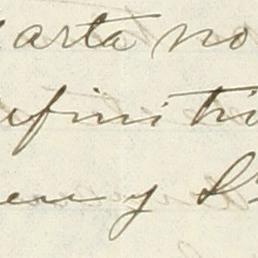 arta no
efiniti
en y